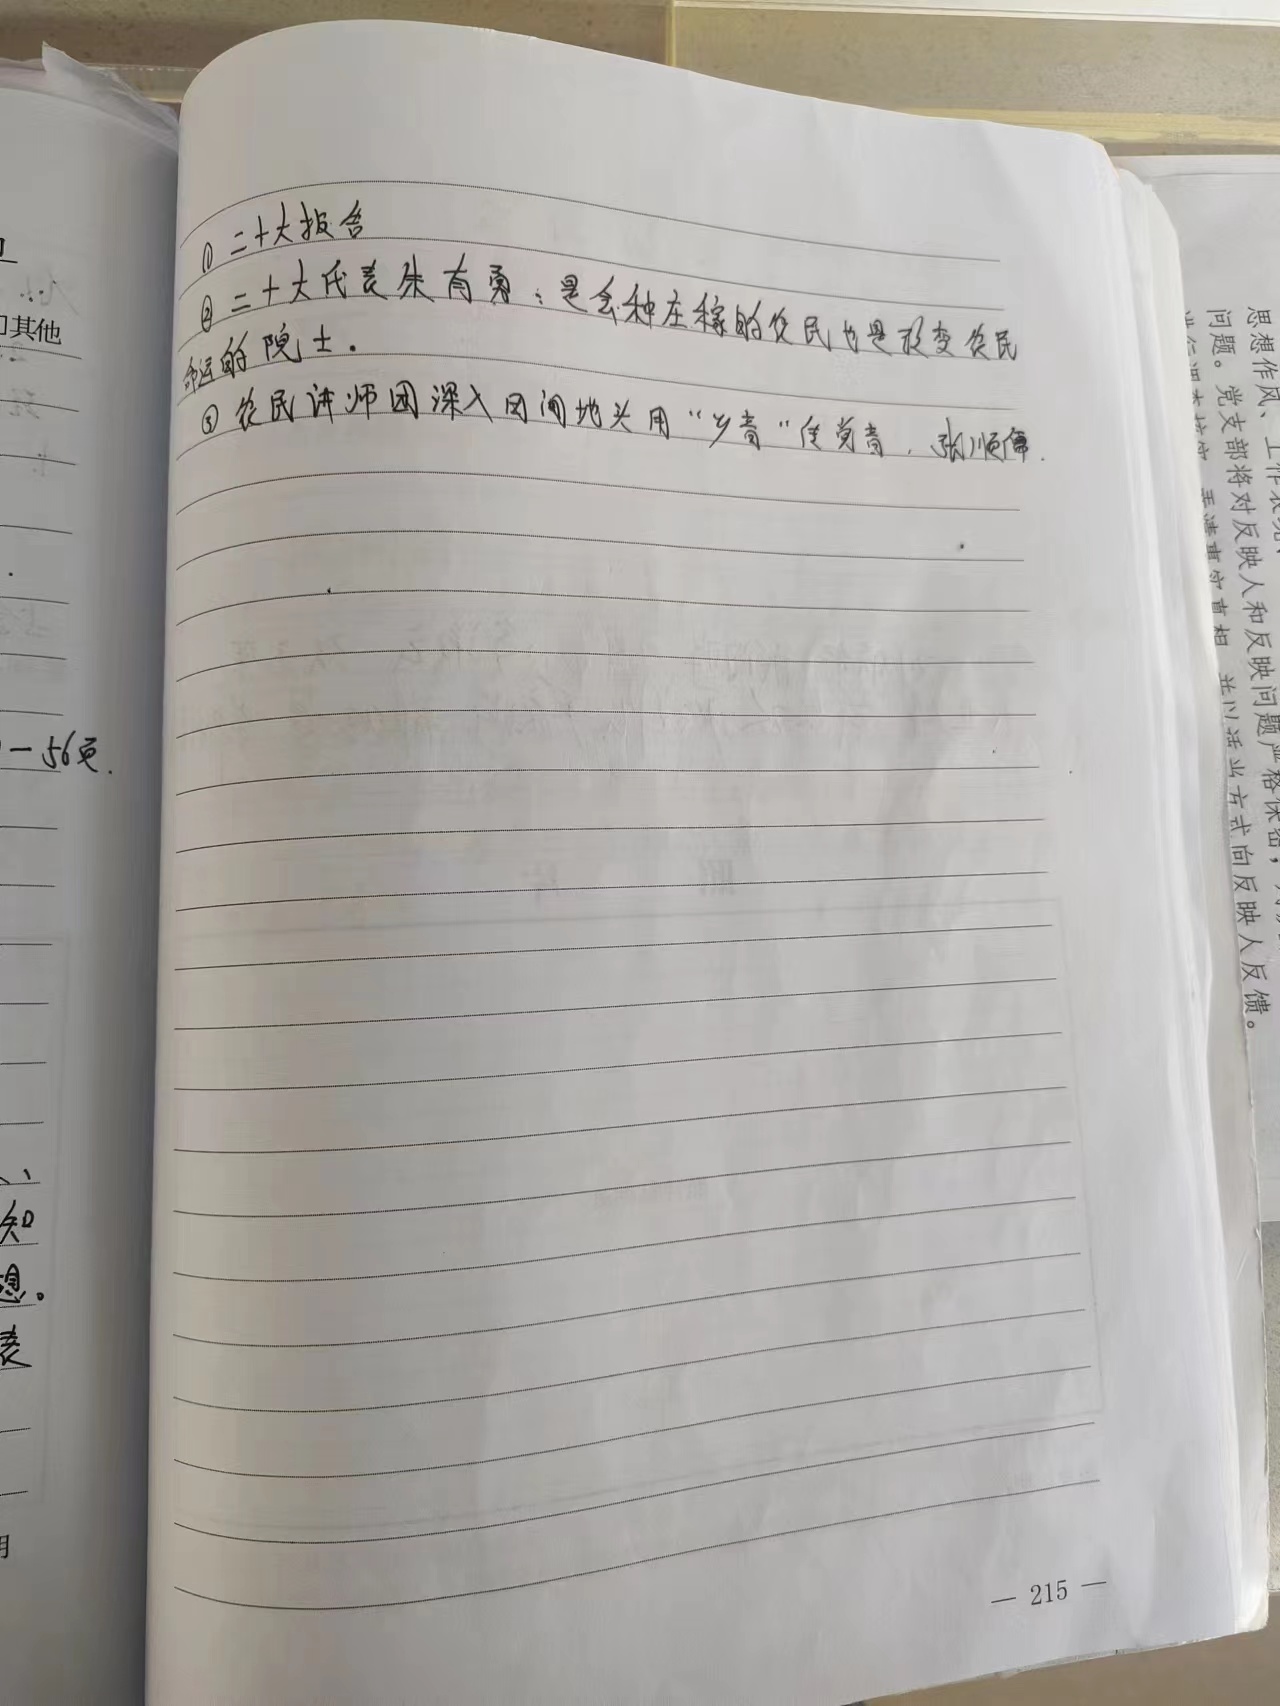 ① 二十大报告
② 二十大代表朱有勇：是会种庄稼的农民也是改变农民
命运的院士.
③ 农民讲师团深入田间地头用“乡音”传党音.
— 215 —
其他
一56页.
知
想。
表
思想作风、工作表现、
问题。党支部将对反映人和反映问题严格保密，
方式向反映人反馈。